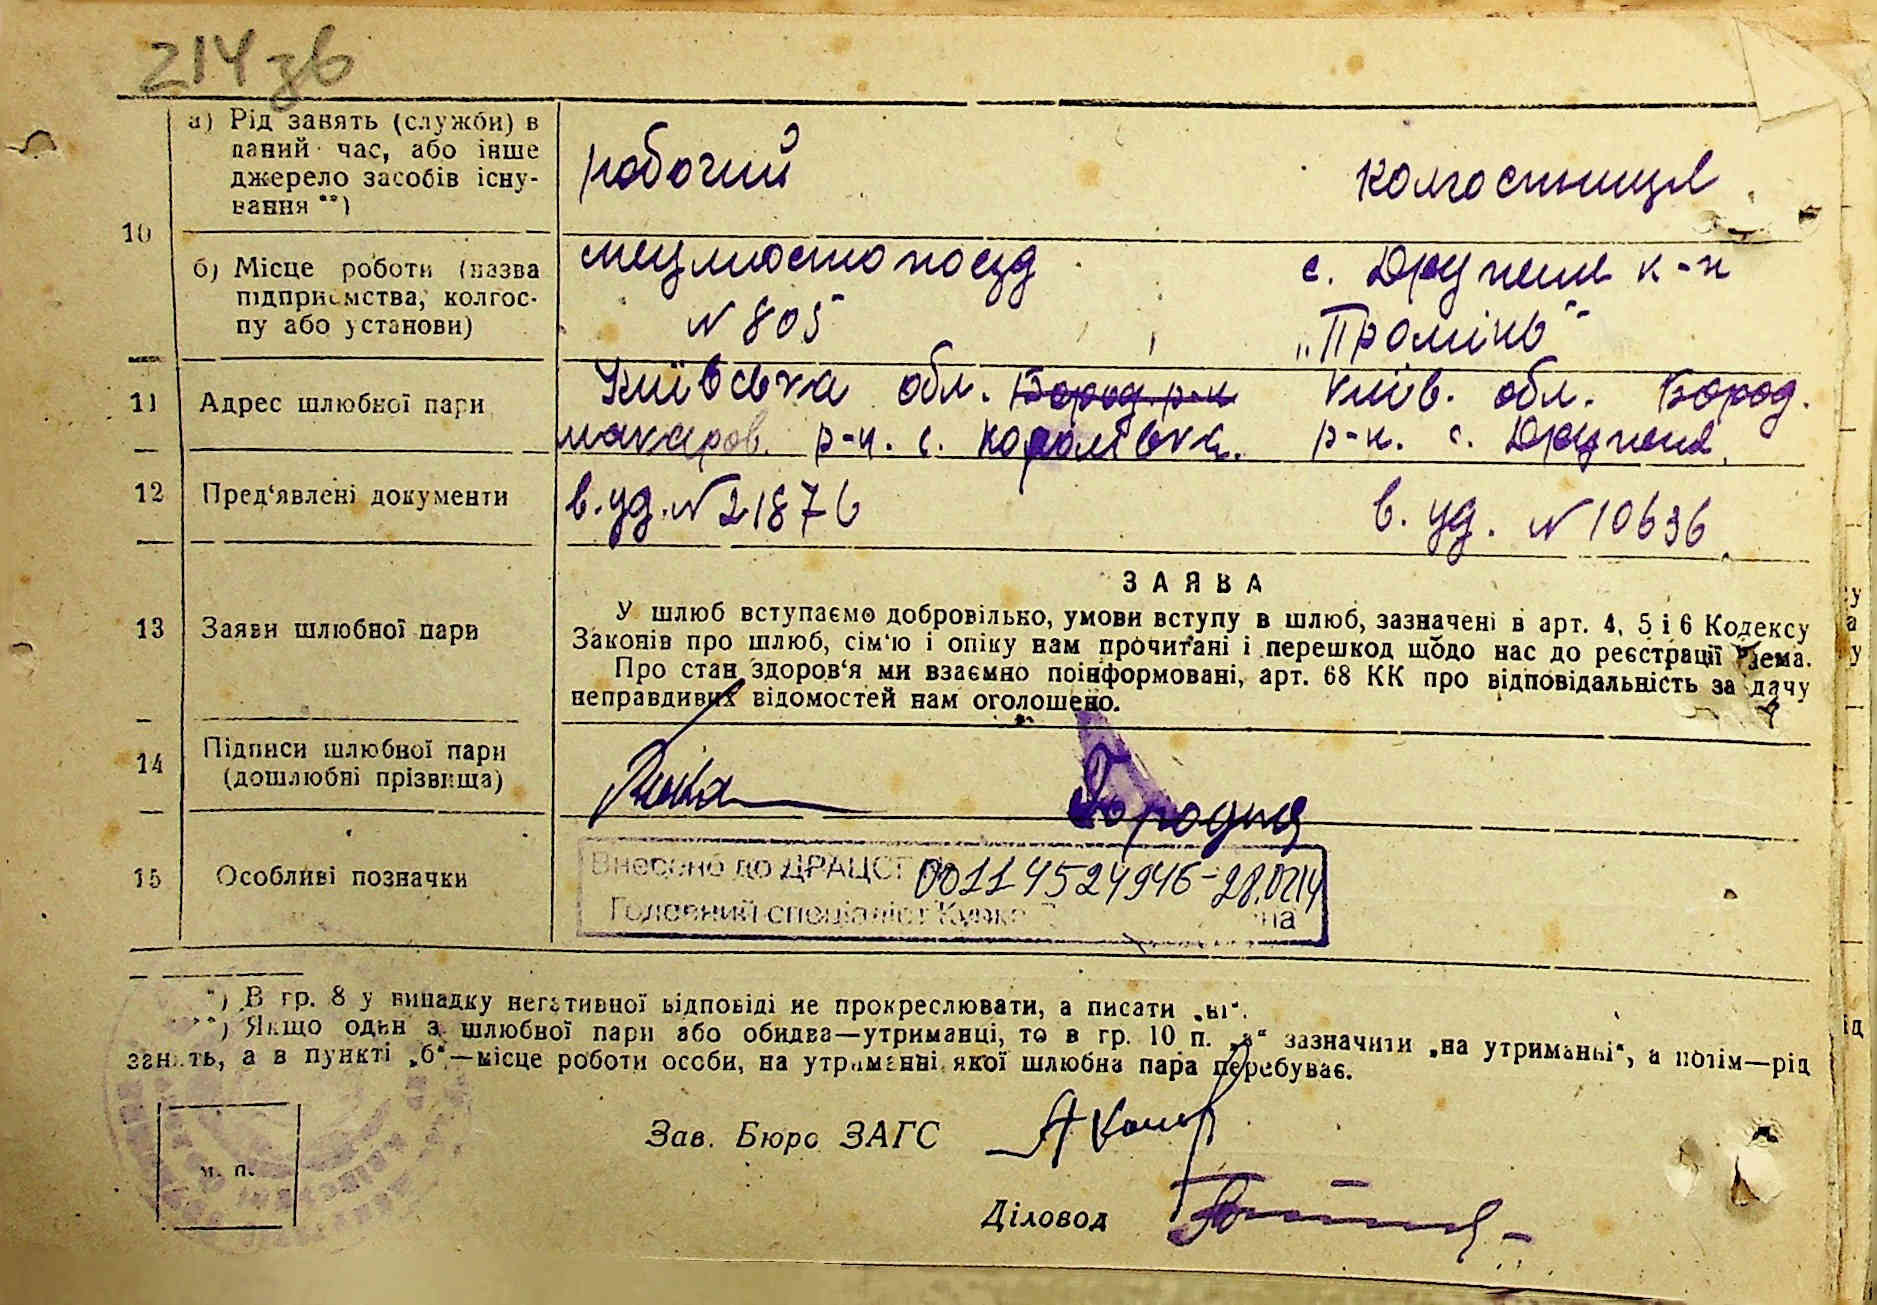 214 зв
а) Рід занять (служби) в
даний час, або інше
джерело засобів існу-
вання **)
робочий
колгоспниця
10
б) Місце роботи (назва
підприємства, колгос-
пу або установи)
№ 805
с. Дружня к-п
„Промінь"
11
Адрес шлюбної пари
Київська обл. Бород. р-н
макаров. р-н. с. Королівка.
Київ. обл. Бород.
р-н. с. Дружня.
12
Пред'явлені документи
в. уд. № 21876
в. уд. № 10636
13
Заяви шлюбної пари
ЗАЯВА
У шлюб вступаємо добровільно, умови вступу в шлюб, зазначені в арт. 4, 5 і 6 Кодексу
Законів про шлюб, сім'ю і опіку нам прочитані і перешкод щодо нас до реєстрації нема.
Про стан здоров'я ми взаємно поінформовані, арт. 68 КК про відповідальність за дачу
неправдивих відомостей нам оголошено.
14
Підписи шлюбної пари
(дошлюбні прізвища)
15
Особливі позначки
Внесено до ДРАЦСГ 00114524946-28.02.14
Головний спеціаліст
*) В гр. 8 у випадку негативної відповіді не прокреслювати, а писати „ні“.
**) Якщо один з шлюбної пари або обидва—утриманці, то в гр. 10 п. „а“ зазначити „на утриманні“, а потім—рід
занять, а в пункті „б“—місце роботи особи, на утриманні якої шлюбна пара перебуває.
Зав. Бюро ЗАГС
м. п.
Діловод